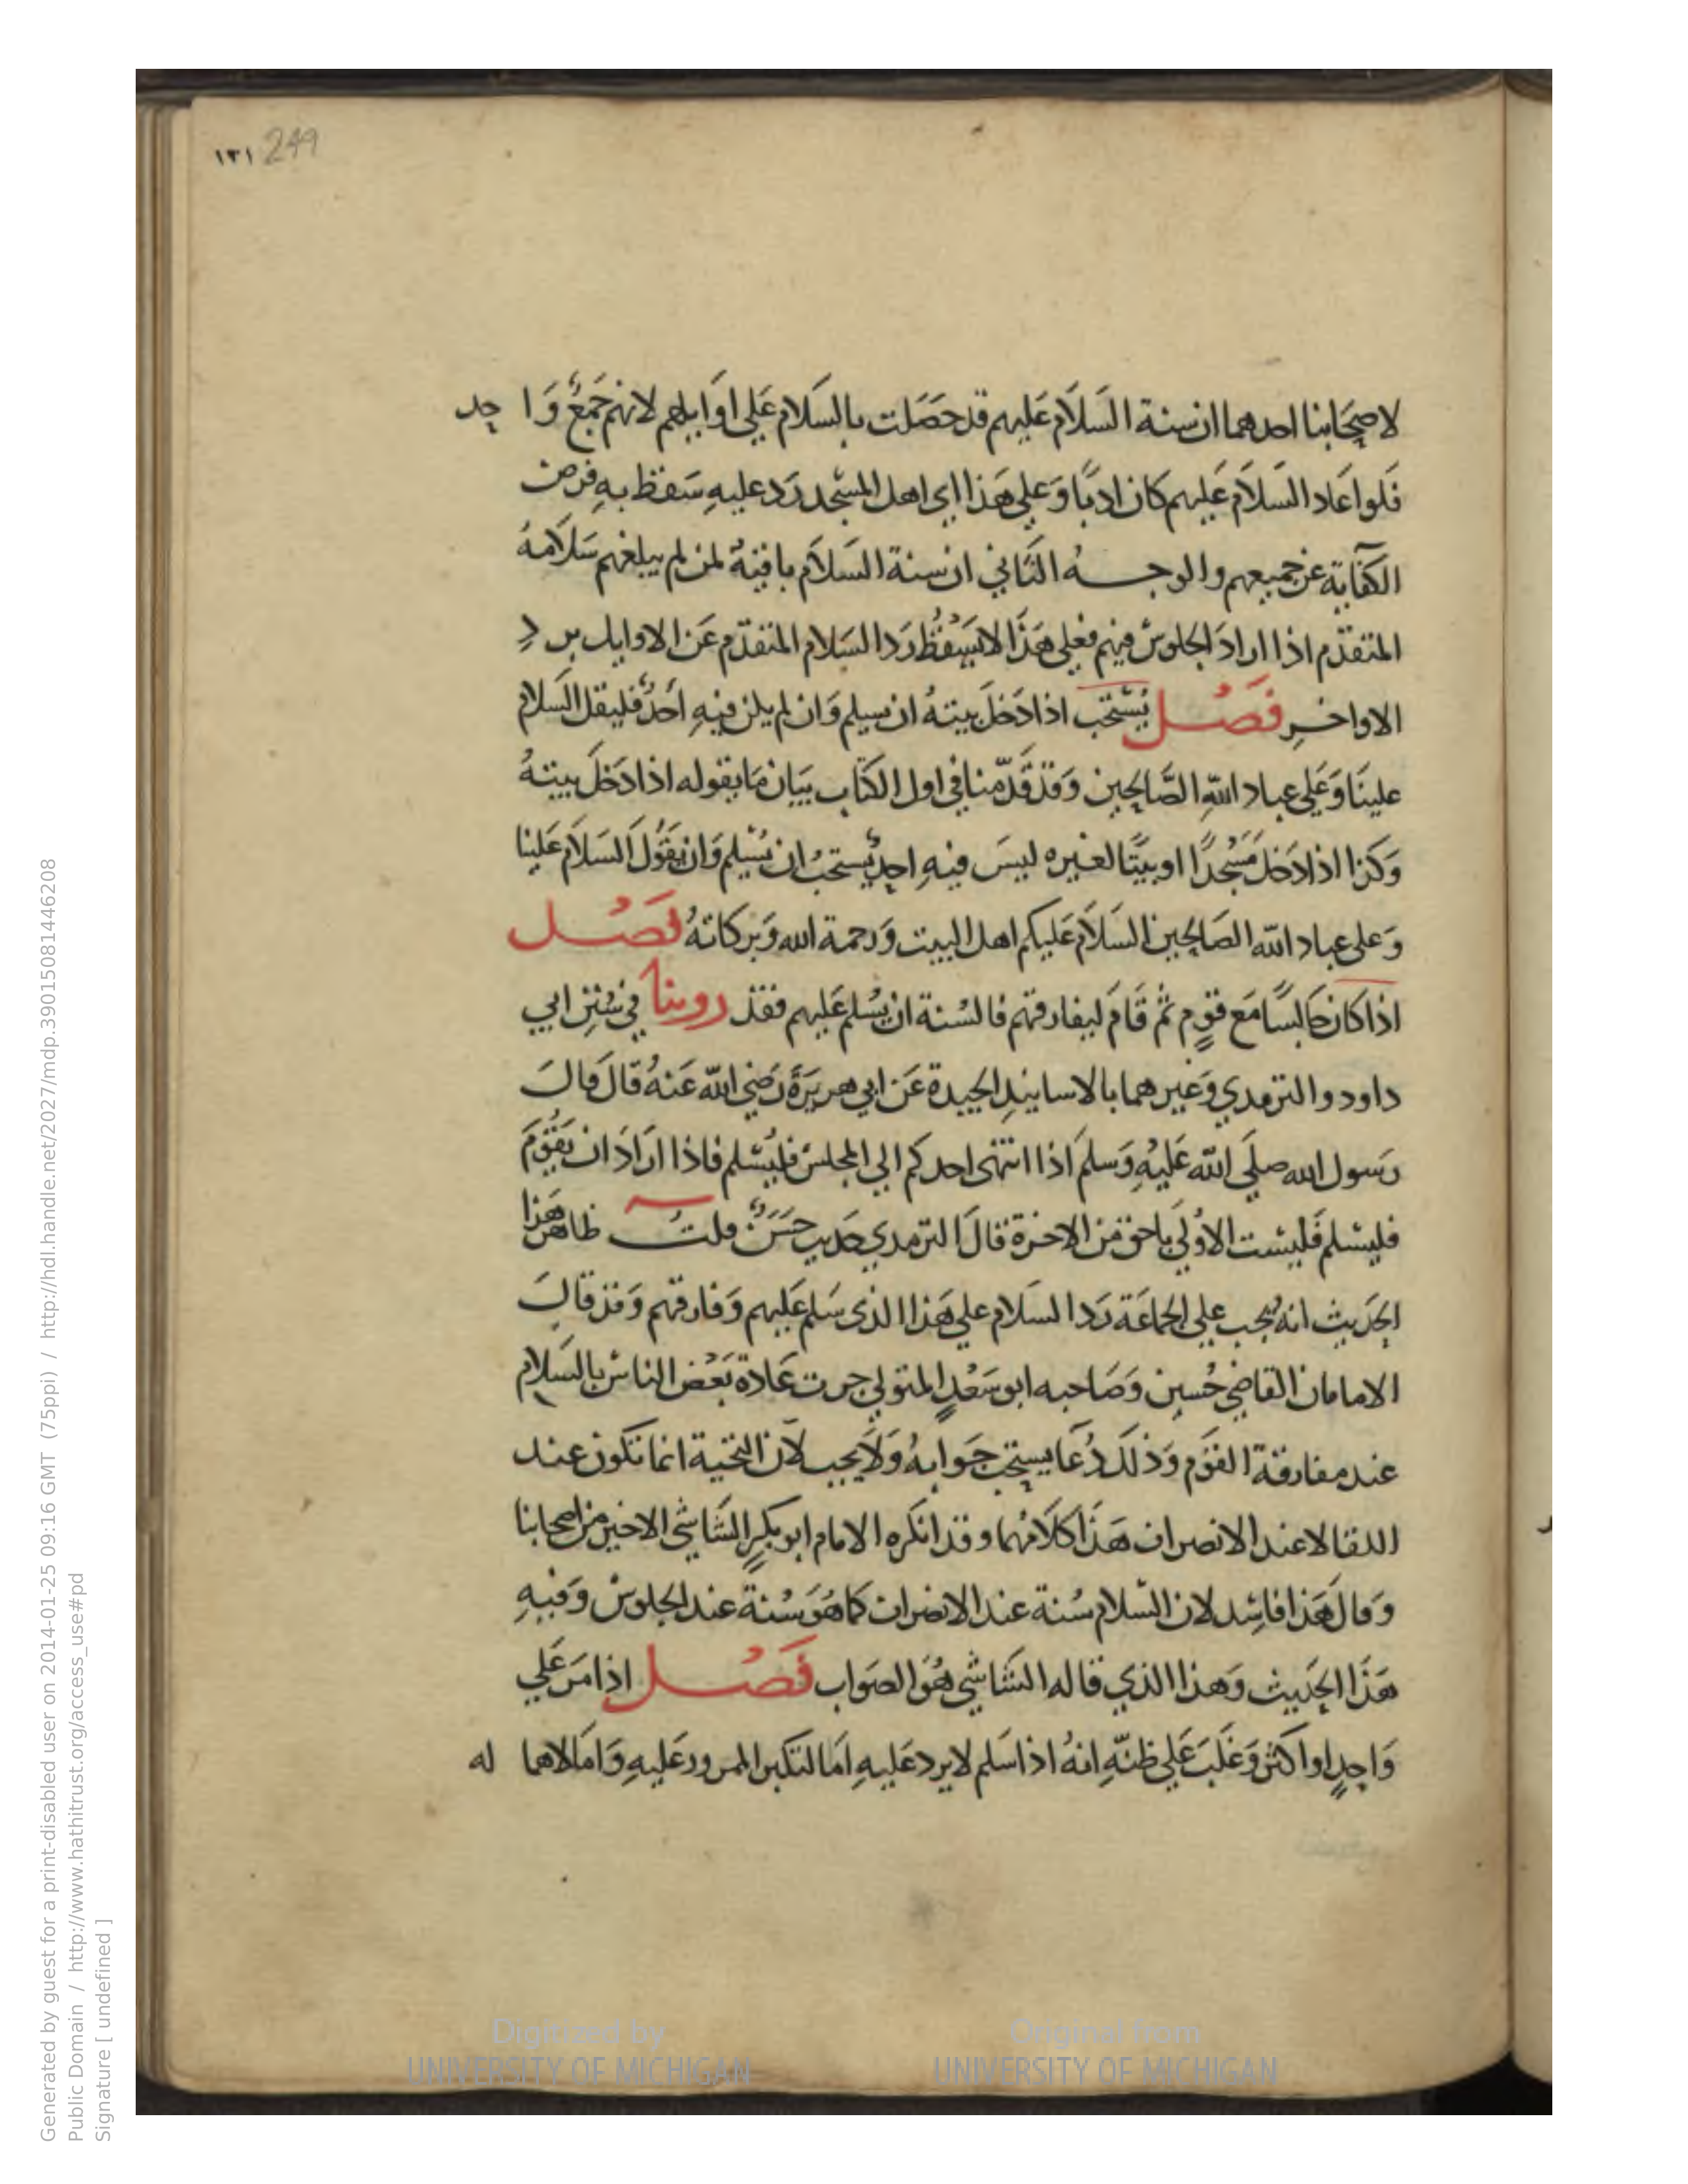 ١٣١ 249
لاصحَابنا احدهما ان سنة السَلاَم عَليهم قد حصَلت بالسَلام عَلي اوَايلهم لانهم جَمعٌ وَاحِد
فَلو اعَاد السَلاَم عَليهم كان ادبًا وَعَلي هَذا اي اهل المسْجد رَد عليهِ سَقط بهِ فرض
الكفايَة عن جميعهم والوجه الثاني ان سنة السَلاَم باقيَةٌ لمن لم يبلغهم سَلاَمهُ
المتقدّم اذا ارادَ الجلوسَ فيهم فعلي هَذا لا يَسْقُط رَد السَلام المتقدّم عَن الاوايل برد
الاواخرِ فَصْل يُسْتَحَب اذا دَخلَ بيتهُ ان يسلم وَان لم يكن فيهِ احَدٌ فليقل السلام
علينَا وَعَلي عباد اللهِ الصَّالحين وَقد قَدّمنا في اول الكتَاب بيَان مَا يقوله اذا دَخلَ بيتهُ
وَكذا اذا دَخلَ مَسْجدًا او بيتًا لغيره ليسَ فيهِ احدٌ يُستحَبُ ان يُسْلم وَان يَقُولَ السَلاَم عَلينا
وَعلي عباد الله الصَالحين السَلاَم عَليكم اهل البيت وَرحمة الله وَبركاتهُ فَصْل
اذا كان جَالسًا مَع قومٍ ثم قَامَ ليفارقهم فالسُنة ان يُسْلم عَليهم فقد روينا في سُننِ ابي
داود والترمدي وَغيرهما بالاسانيدِ الجيدة عَن ابي هريَرَةَ رَضي الله عَنهُ قال قالَ
رَسول الله صلَي الله عَليهِ وَسلمَ اذا انتهى احدكم الي المجلس فليُسْلم فاذا ارَادَ ان يَقُومَ
فليسْلم فَليسْت الاوُلَي باحق من الاخرة قالَ الترمدي حَديث حسَنٌ قلت ظاهر هَذا
الحَديث انه يُجب علي الجماعَة رَد السَلام علي هَذا الذى سَلم عَليهم وَفارقهم وَقد قالَ
الامامان القاضي حُسين وَصَاحبه ابو سَعْدٍ المتولي جرت عَادة بَعْض الناس بالسلام
عند مفارقة القَوم وَذلكَ دُعَا يستحَب جَوابهُ وَلاَ يجب لاَن التحية انما تكون عند
اللقا لا عند الانصراف هَذا كلاَمهُما وقد انكره الامام ابو بكرٍ الشَاشي الاخير من اصحابنا
وَقالَ هَذا فاسِد لان السَلام سُنة عند الانصراف كما هوَ سُنة عند الجلوس وَفيهِ
هَذا الحَديث وَهذا الذي قاله الشَاشي هُوَ الصَواب فَصْل اذا مَر عَلي
وَاحِدٍ او اكثر وَغلَبَ عَلي ظنّهِ انهُ اذا سَلم لا يرد عَليهِ اما لتكبر الممرور عَليهِ وَاما لاهماله